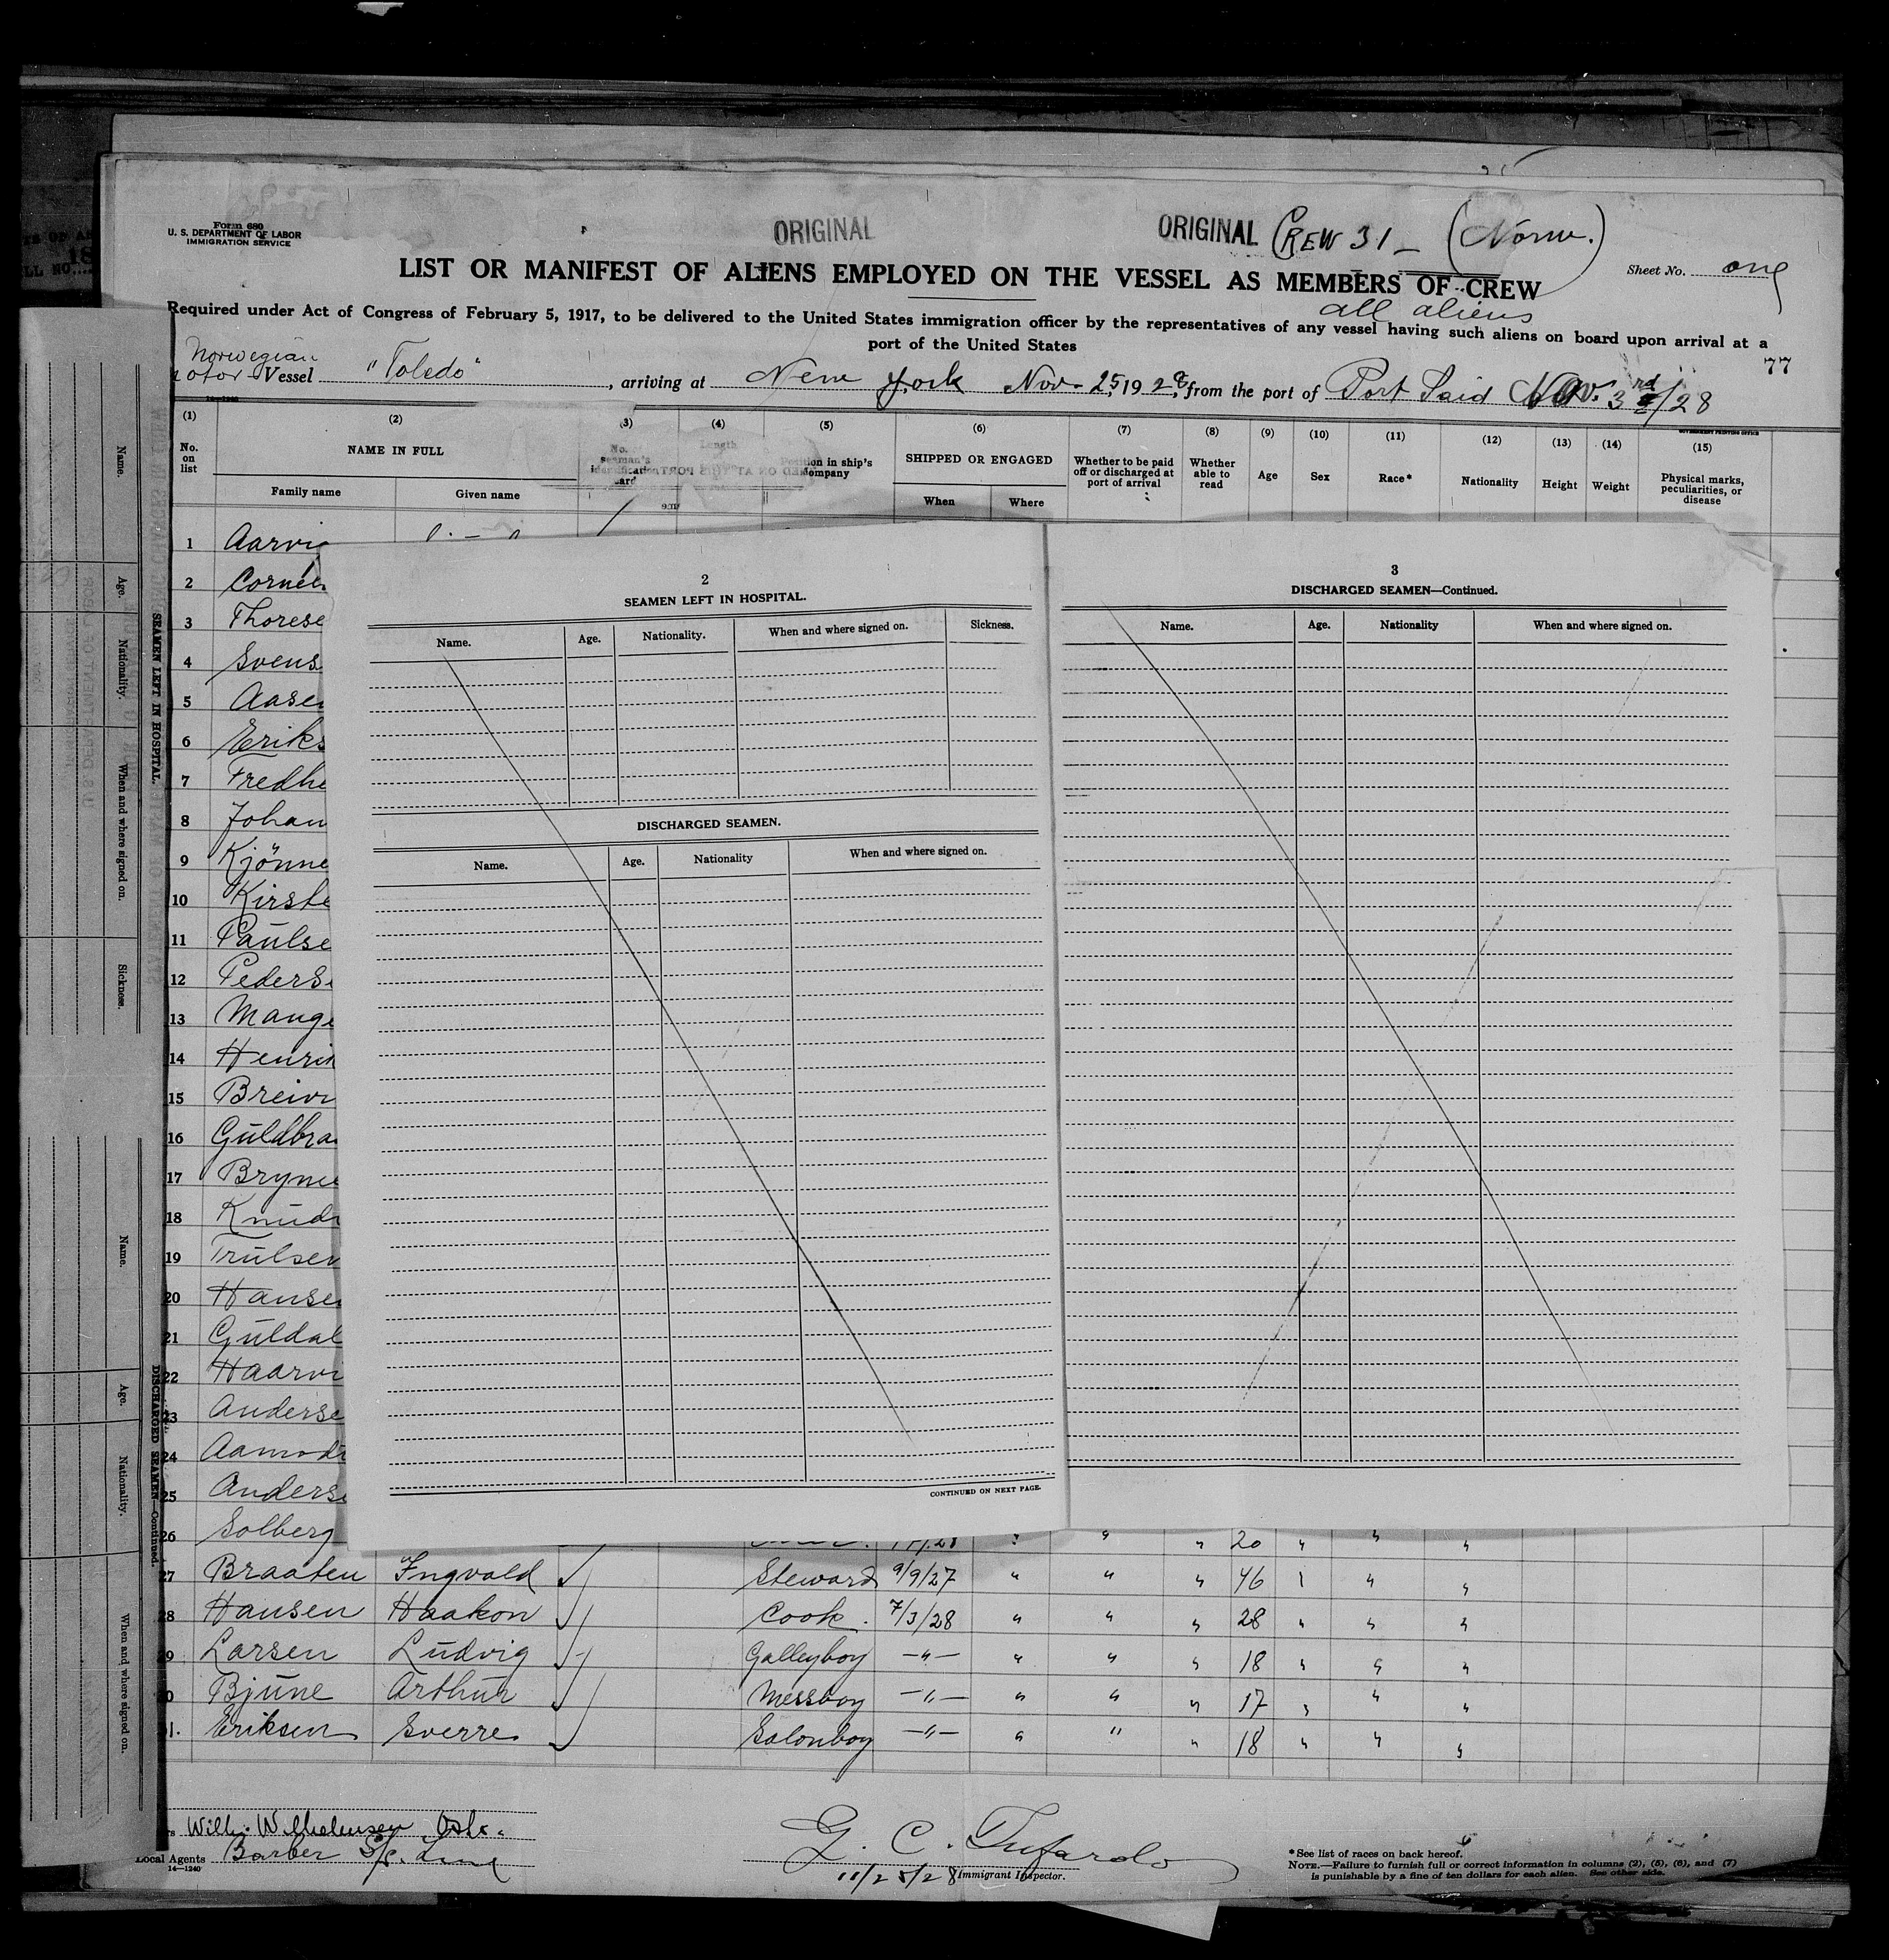 Form 680
U. S. DEPARTMENT OF LABOR
IMMIGRATION SERVICE
ORIGINAL
ORIGINAL CREW 31 – (Norw.)
LIST OR MANIFEST OF ALIENS EMPLOYED ON THE VESSEL AS MEMBERS OF CREW
Sheet No. one
all aliens
Required under Act of Congress of February 5, 1917, to be delivered to the United States immigration officer by the representatives of any vessel having such aliens on board upon arrival at a
port of the United States
77
Norwegian
Vessel "Toledo", arriving at New York Nov. 25, 1928, from the port of Port Said Nov. 3rd/28
14-1240
GOVERNMENT PRINTING OFFICE
(1) (2) (3) (4) (5) (6) (7) (8) (9) (10) (11) (12) (13) (14) (15)
No. on list NAME IN FULL No. seaman's identification card Length Position in ship's company SHIPPED OR ENGAGED Whether to be paid off or discharged at port of arrival Whether able to read Age Sex Race* Nationality Height Weight Physical marks, peculiarities, or disease
Family name Given name When Where
1 Aarvi
2 Cornel
3 Thorese
4 Svens
5 Aasen
6 Eriks
7 Fredh
8 Johan
9 Kjönne
10 Kirste
11 Paulse
12 Peders
13 Mange
14 Henrik
15 Breivi
16 Guldbra
17 Bryne
18 Knuds
19 Trulsen
20 Hansen
21 Guldal
22 Haarvi
23 Anderse
24 Aamodt
25 Anderse
26 Solberg 20 " " "
27 Braaten Ingvald Steward 9/9/27 " " " 46 " "
28 Hansen Haakon Cook. 7/3/28 " " " 28 " " "
29 Larsen Ludvig Galleyboy –"– " " " 18 " " "
30 Bjune Arthur Messboy –"– " " " 17 " " "
31. Eriksen Sverre Salonboy –"– " " " 18 " " "
2
SEAMEN LEFT IN HOSPITAL.
Name. Age. Nationality. When and where signed on. Sickness.
DISCHARGED SEAMEN.
Name. Age. Nationality When and where signed on.
CONTINUED ON NEXT PAGE.
3
DISCHARGED SEAMEN—Continued.
Name. Age. Nationality When and where signed on.
SEAMEN LEFT IN HOSPITAL.
Name. Age. Nationality. When and where signed on. Sickness.
DISCHARGED SEAMEN—Continued.
Name. Age. Nationality. When and where signed on.
Wilh. Wilhelmsen Oslo.
Local Agents Barber S/S. Line
14-1240
G. C. Tufardo
11/25/28 Immigrant Inspector.
*See list of races on back hereof.
NOTE.—Failure to furnish full or correct information in columns (2), (5), (6), and (7)
is punishable by a fine of ten dollars for each alien. See other side.